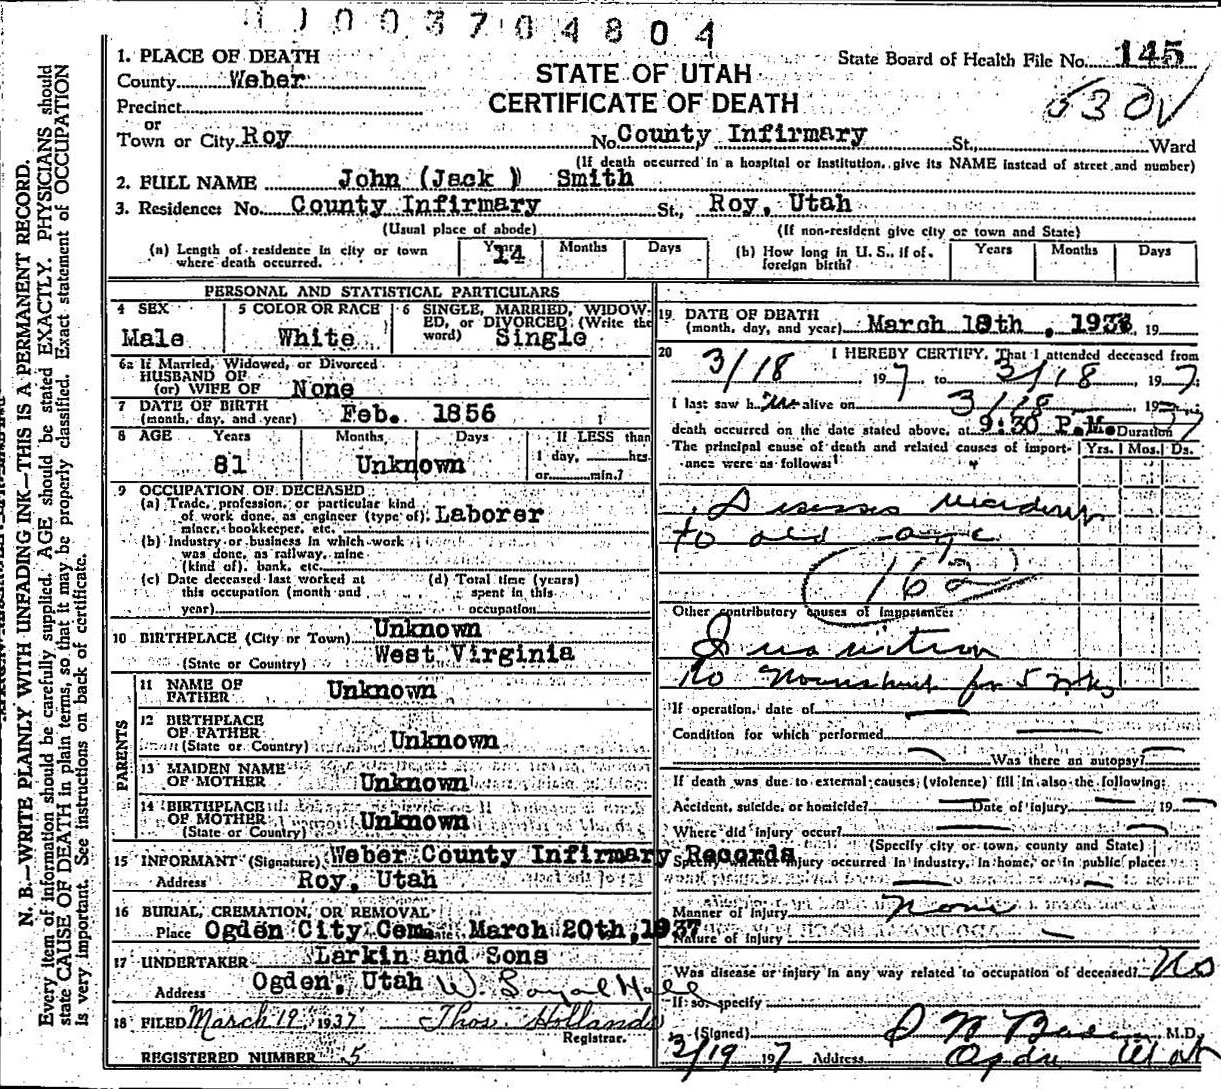 1003704804
1. PLACE OF DEATH
County Weber
Precinct
or
Town or City Roy
STATE OF UTAH
CERTIFICATE OF DEATH
State Board of Health File No. 145
No. County Infirmary St., Ward
(If death occurred in a hospital or institution, give its NAME instead of street and number)
2. FULL NAME John (Jack ) Smith
3. Residence: No. County Infirmary St., Roy, Utah
(Usual place of abode) (If non-resident give city or town and State)
(a) Length of residence in city or town where death occurred. Years 14 Months Days
(b) How long in U. S., if of foreign birth? Years Months Days
PERSONAL AND STATISTICAL PARTICULARS
4 SEX Male
5 COLOR OR RACE White
6 SINGLE, MARRIED, WIDOWED, or DIVORCED (Write the word) Single
6a If Married, Widowed, or Divorced
HUSBAND OF
(or) WIFE OF None
7 DATE OF BIRTH
(month, day, and year) Feb. 1856
8 AGE Years Months Days If LESS than
81 Unknown 1 day, hrs.
or min.?
9 OCCUPATION OF DECEASED
(a) Trade, profession, or particular kind
of work done, as engineer (type of), Laborer
miner, bookkeeper, etc.
(b) Industry or business in which work
was done, as railway, mine
(kind of), bank, etc.
(c) Date deceased last worked at
this occupation (month and
year)
(d) Total time (years)
spent in this
occupation
10 BIRTHPLACE (City or Town) Unknown
(State or Country) West Virginia
PARENTS
11 NAME OF
FATHER Unknown
12 BIRTHPLACE
OF FATHER
(State or Country) Unknown
13 MAIDEN NAME
OF MOTHER Unknown
14 BIRTHPLACE
OF MOTHER Unknown
(State or Country)
15 INFORMANT (Signature) Weber County Infirmary Records
Address Roy, Utah
16 BURIAL, CREMATION, OR REMOVAL
Place Ogden City Cem. Date March 20th, 1937
17 UNDERTAKER Larkin and Sons
Address Ogden, Utah
18 FILED March 19, 1937 Thos. Hollands
Registrar.
REGISTERED NUMBER 5
19 DATE OF DEATH
(month, day, and year) March 18th , 193 , 19
20 I HEREBY CERTIFY, That I attended deceased from
3/18 197 to 3/18 197
I last saw him alive on 3/18 1937
death occurred on the date stated above, at 9:30 P.M. Duration
The principal cause of death and related causes of import- Yrs. Mos. Ds.
ance were as follows:
to old age
(162)
Other contributory causes of importance:
Inanition
no nourishment for 5 wks
If operation, date of
Condition for which performed
Was there an autopsy?
If death was due to external causes (violence) fill in also the following:
Accident, suicide, or homicide? Date of injury 19
Where did injury occur?
(Specify city or town, county and State)
Specify whether injury occurred in industry, in home, or in public place:
Manner of injury None
Nature of injury
Was disease or injury in any way related to occupation of deceased? No
If so, specify
(Signed) M.D.
3/19 197 Address Ogden Utah
N. B.—WRITE PLAINLY WITH UNFADING INK—THIS IS A PERMANENT RECORD.
Every item of information should be carefully supplied. AGE should be stated EXACTLY. PHYSICIANS should
state CAUSE OF DEATH in plain terms, so that it may be properly classified. Exact statement of OCCUPATION
is very important. See instructions on back of certificate.